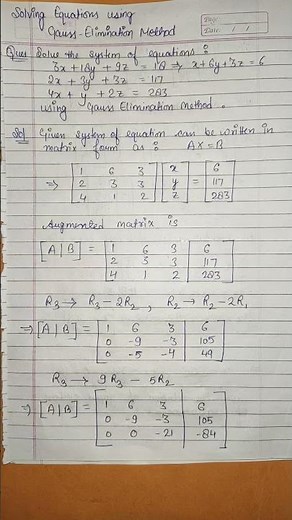 Solving Equations using
Gauss-Elimination Method
Date: / /
Ques: Solve the system of equations :
3x+18y+9z = 18 ⇒ x+6y+3z = 6
2x + 3y + 3z = 117
4x + y + 2z = 283
using Gauss Elimination Method.
Sol: Given system of equation can be written in
matrix form as : AX=B
⇒ [1 6 3] [x] = [6]
[2 3 3] [y] [117]
[4 1 2] [z] [283]
Augmented matrix is
[A|B] = [1 6 3 | 6]
[2 3 3 | 117]
[4 1 2 | 283]
R3 → R3-2R2 , R2 → R2-2R1
⇒ [A|B] = [1 6 3 | 6]
[0 -9 -3 | 105]
[0 -5 -4 | 49]
R3 → 9R3 - 5R2
⇒ [A|B] = [1 6 3 | 6]
[0 -9 -3 | 105]
[0 0 -21 | -84]